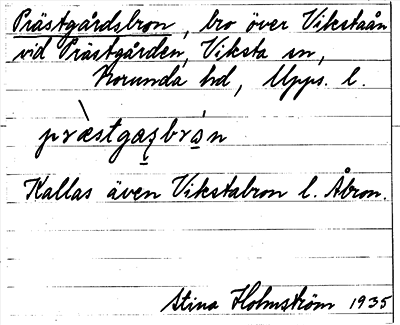 Prästgårdsbron, bro över Vikstaån
vid Prästgården, Viksta sn,
Norunda hd, Upps. l.
Kallas även Vikstabron l. Åbron.
Stina Holmström 1935